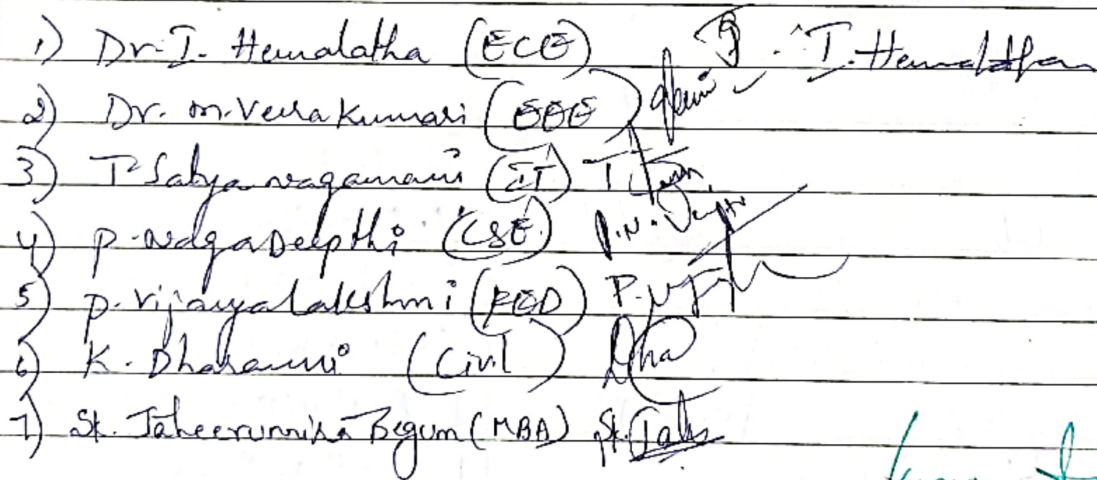 1) Dr. I. Hemalatha (ECE) I. Hemalatha
2) Dr. M. Veera Kumari (EEE)
3) T Satya nagamani (IT) T.
4) P. Naga Deepthi (CSE) P.N.
5) P. Vijayalakshmi (FED) P.
6) K. Dharani (Civil) Dha
7) Sk. Taheerunnisa Begum (MBA) Sk. Tahe